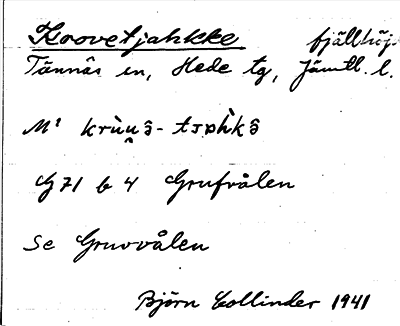 Kroovetjahkke fjällhöjd.
Tännäs sn, Hede tg, Jämtl. l.
G 71 b 4 Grufvålen
Se Gruvvålen
Björn Collinder 1941